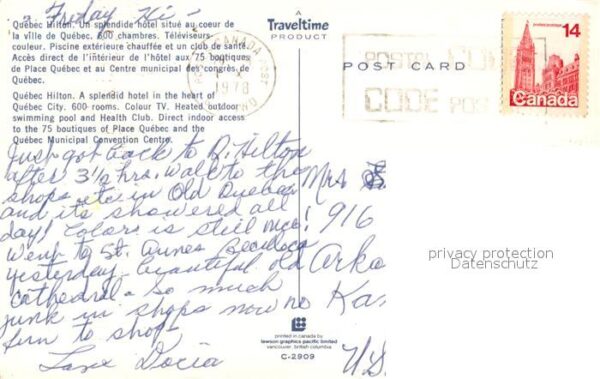 Friday Hi -
Québec Hilton. Un splendide hôtel situé au coeur de
la ville de Québec. 600 chambres. Téléviseurs
couleur. Piscine extérieure chauffée et un club de santé.
Accès direct de l'intérieur de l'hôtel aux 75 boutiques
de Place Québec et au Centre municipal des congrès de
Québec.
Québec Hilton. A splendid hotel in the heart of
Québec City. 600 rooms. Colour TV. Heated outdoor
swimming pool and Health Club. Direct indoor access
to the 75 boutiques of Place Québec and the
Québec Municipal Convention Centre.
Just got back to Q. Hilton
after 3½ hrs. walk to the
shops etc in Old Quebec
and it's showered all
day! Colors is still nice!
Went to St. Annes
yesterday - beautiful old
cathedral - So much
junk in shops now no
fun to shop.
Love Docia
A
Traveltime
PRODUCT
CANADA POST
1978
POSTAL CODE
CODE POSTAL
POST CARD
14
Canada
Mrs
916
Arka
Ka.
U.S.
privacy protection
Datenschutz
printed in canada by
lawson graphics pacific limited
vancouver, british columbia
C-2909